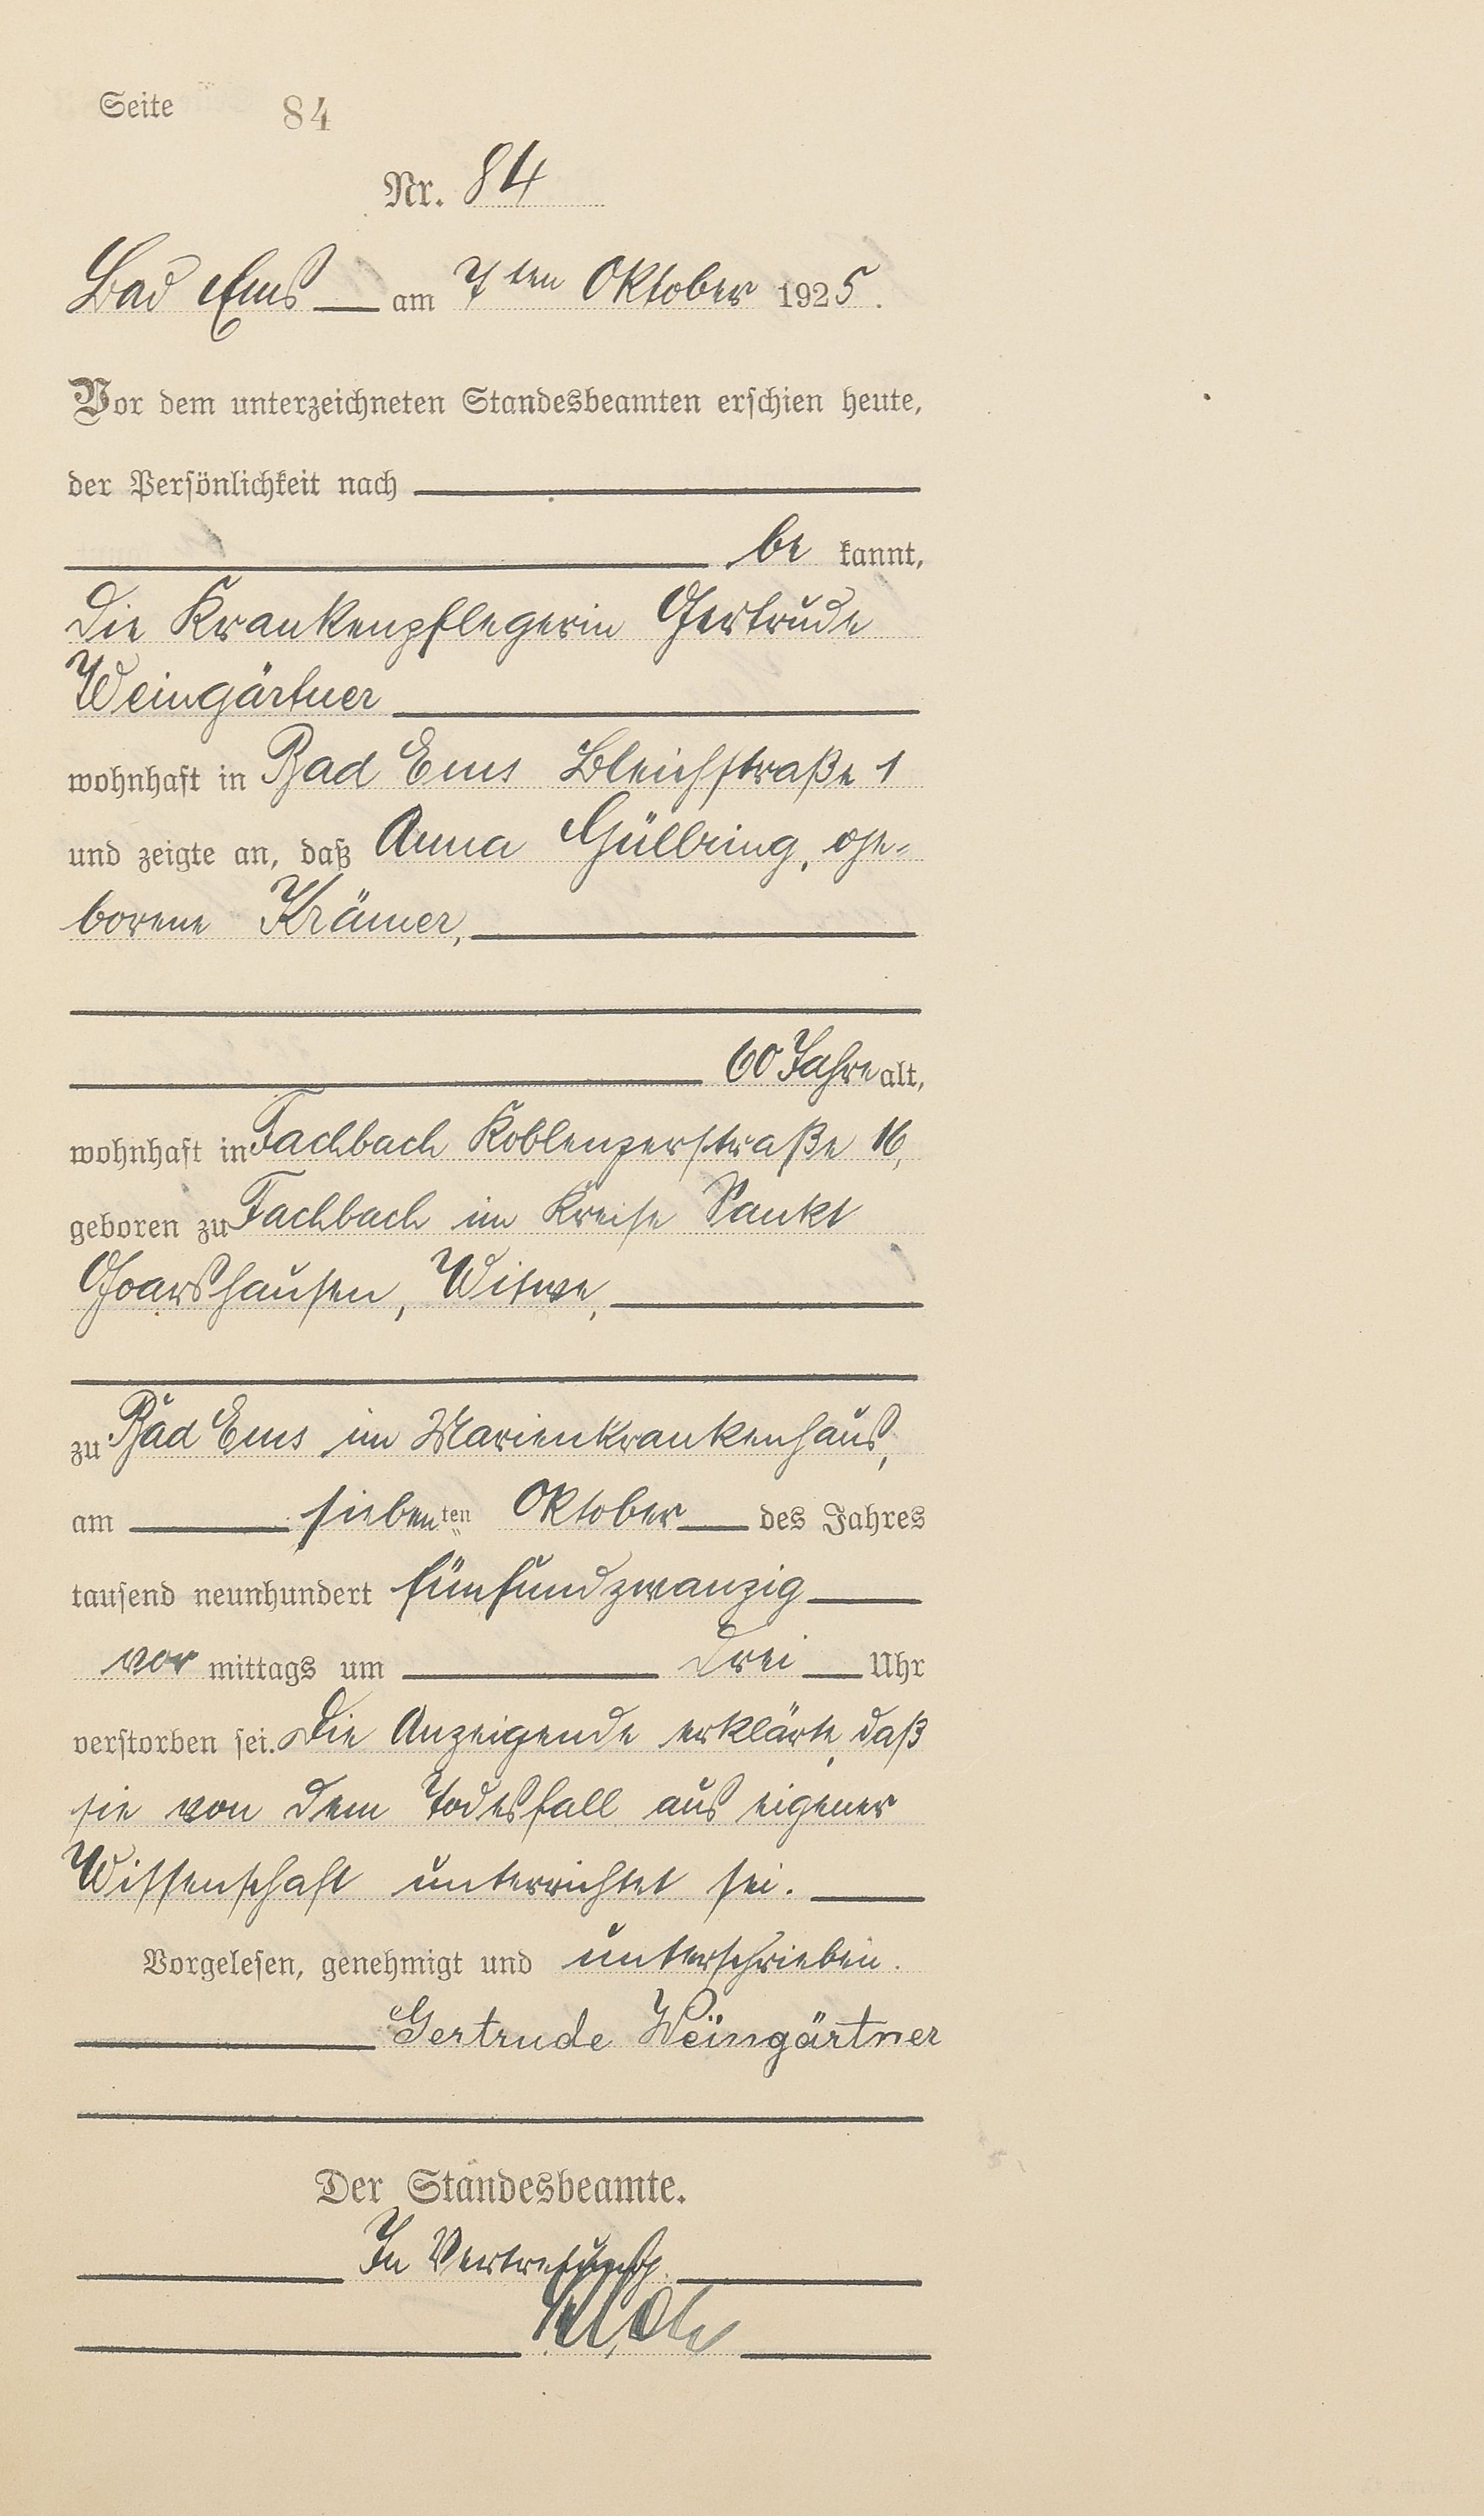 Seite 84
Nr. 84
Bad Ems am 7ten Oktober 1925.
Vor dem unterzeichneten Standesbeamten erschien heute,
der Persönlichkeit nach
be kannt,
die Krankenpflegerin Gertrude
Weingärtner
wohnhaft in Bad Ems Bleichstraße 1
und zeigte an, daß Anna Güllring, ge-
borene Krämer,
60 Jahre alt,
wohnhaft in Fachbach Koblenzerstraße 16,
geboren zu Fachbach im Kreise Sankt
Goarshausen, Witwe,
zu Bad Ems im Marienkrankenhaus,
am siebenten Oktober des Jahres
tausend neunhundert fünfundzwanzig
vor mittags um drei Uhr
verstorben sei. Die Anzeigende erklärte, daß
sie von dem Todesfall aus eigener
Wissenschaft unterrichtet sei.
Vorgelesen, genehmigt und unterschrieben.
Gertrude Weingärtner
Der Standesbeamte.
In Vertretung.